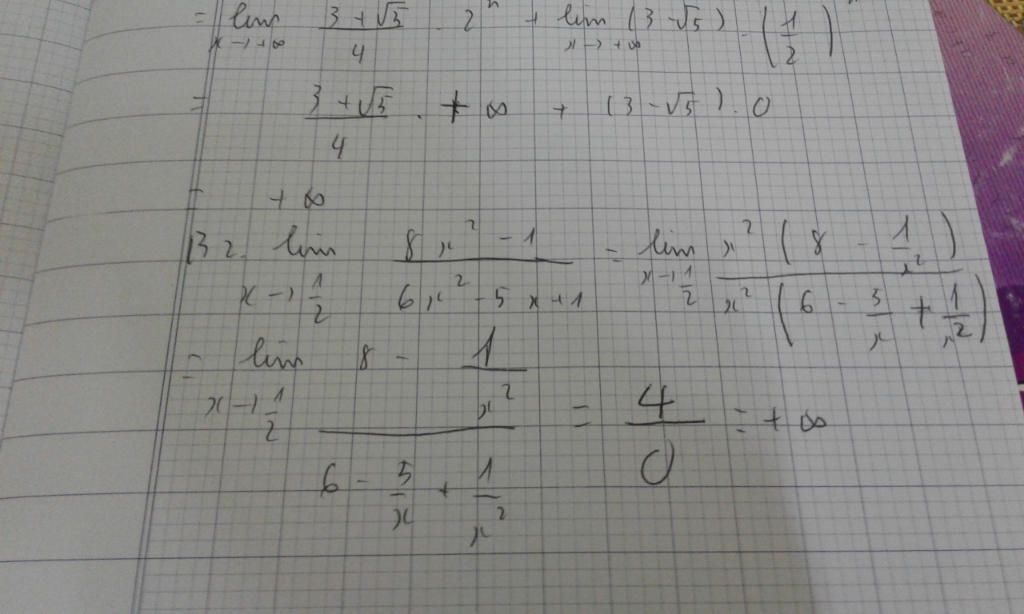 = lim x→+∞ (3+√5)/4 · 2^n + lim x→+∞ (3-√5) · (1/2)^n
= (3+√5)/4 · +∞ + (3-√5) · 0
= +∞
B2. lim x→1/2 (8x² - 1)/(6x² - 5x + 1) = lim x→1/2 x²(8 - 1/x²)/x²(6 - 5/x + 1/x²)
= lim x→1/2 (8 - 1/x²)/(6 - 5/x + 1/x²) = 4/0 = +∞